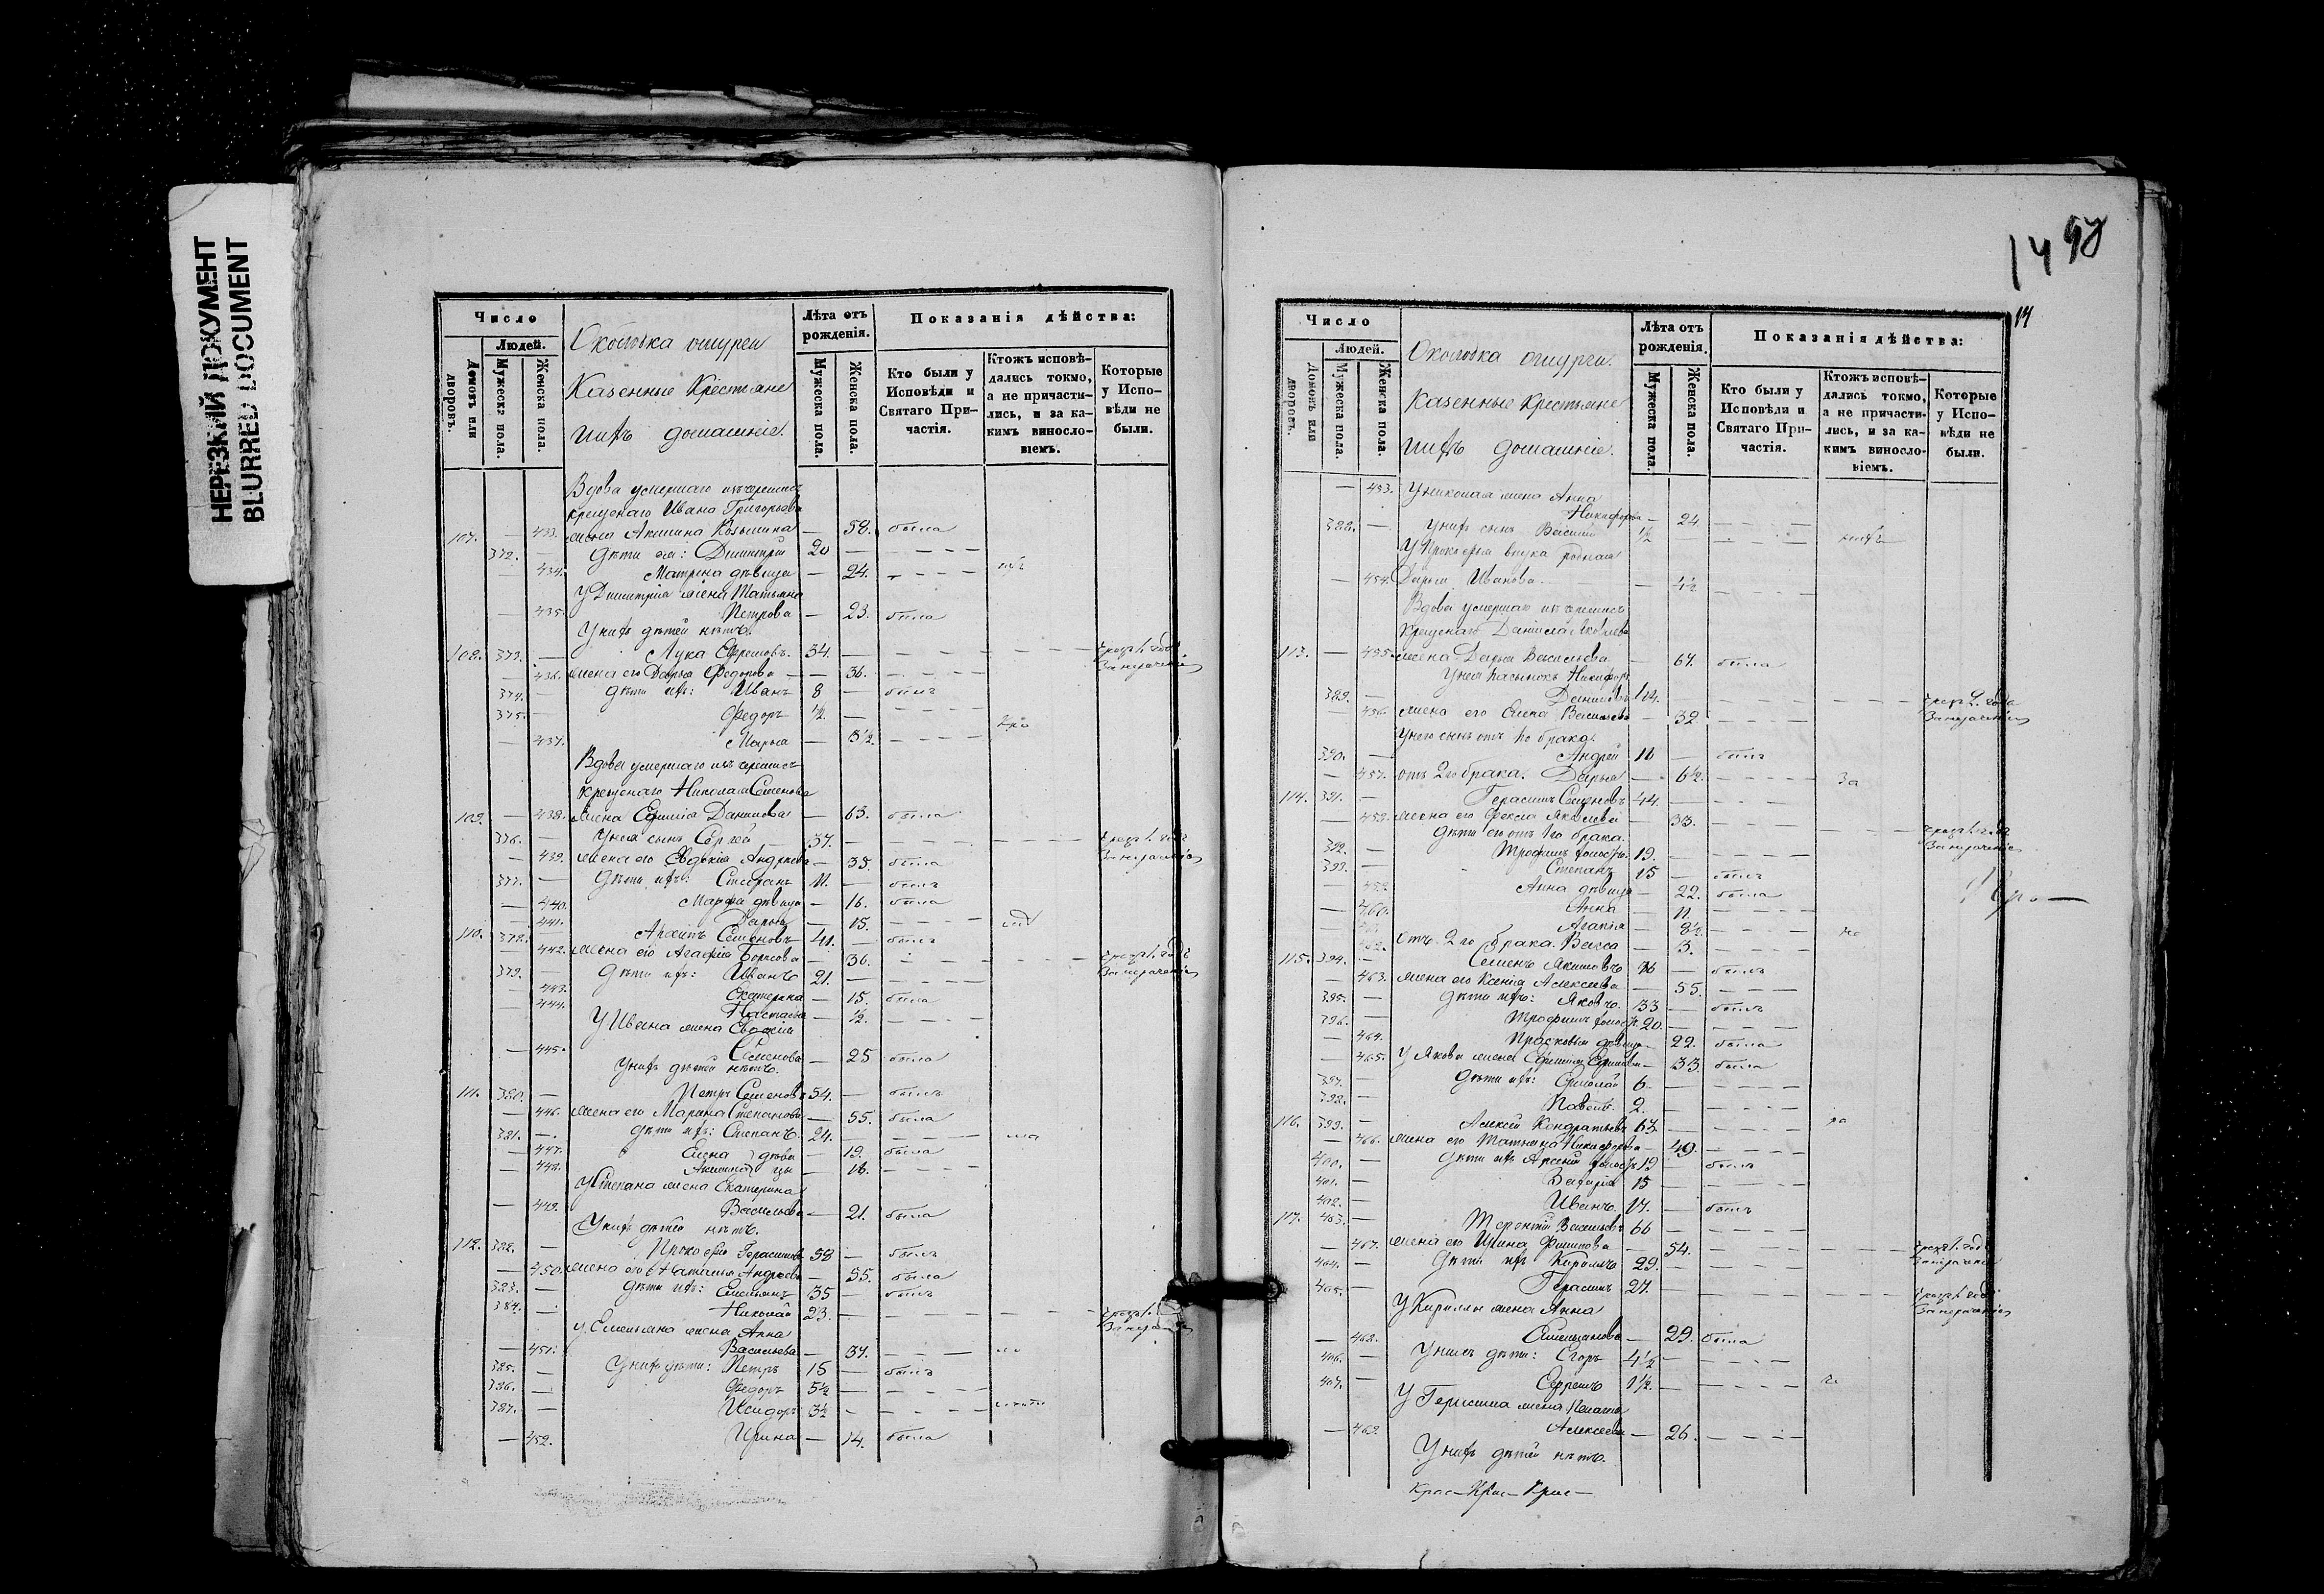 НЕРЕЗКИЙ ДОКУМЕНТ
BLURRED DOCUMENT
Число
Людей.
Домовъ или дворовъ.
Мужеска пола.
Женска пола.
Околодка ошурги
Казенные Крестьяне
и ихъ домашніе.
Лѣта отъ рожденія.
Мужеска пола.
Женска пола.
Показанія дѣйства:
Кто были у Исповѣди и Святаго Причастія.
Ктожъ исповѣдались токмо, а не причастились, и за какимъ винословіемъ.
Которые у Исповѣди не были.
Вдова умершаго изъ черемисъ
крещенаго Ивана Григорьева
107. — 433. жена Акилина Козьмина — 58. была
372. — дѣти ея: Димитрій 20 —
— 434. Матрена дѣвица — 24.
У Димитрія жена Татьяна
— 435. Петрова — 23. была
У нихъ дѣтей нѣтъ.
108. 373. — Лука Ефремовъ. 34. —
— 436. жена его Дарья Федорова — 36.
374. — дѣти ихъ: Иванъ 8 — былъ
375. — Федоръ ½. —
— 437. Марья — 3½.
Вдова умершаго изъ черемисъ
крещенаго Николая Семенова
109. — 438. жена Ефимія Данилова — 63. была
376. — У нея сынъ Сергѣй 37.
— 439. жена его Евдокія Андреева — 35. была
377. — дѣти ихъ: Стефанъ 11. — былъ
— 440. Марфа дѣвица — 16. была
— 441. Дарья — 15.
110. 378. Архипъ Семеновъ 41. — былъ
— 442. жена его Агафія Борисова — 36.
379. — дѣти ихъ: Иванъ 21.
— 443. Екатерина — 15. была
— 444. Настасья — ½.
У Ивана жена Евдокія
— 445. Семенова — 25 была
У нихъ дѣтей нѣтъ.
111. 380. — Петръ Семеновъ 54. — былъ
— 446. жена его Марина Степанова — 55. была
381. — дѣти ихъ: Степанъ. 24.
— 447. Елена дѣви — 19. была
— 448. Акилина цы — 16.
У Степана жена Екатерина
— 449. Васильева — 21. была
У нихъ дѣтей нѣтъ.
112. 382. — Прокофій Герасимовъ 58 — былъ
— 450. жена его Наталья Андреева — 55. была
383. — дѣти ихъ: Емельянъ 35 — былъ
384. — Николай 23.
У Емельяна жена Анна
— 451. Васильева — 37.
385. — У нихъ дѣти: Петръ 15 — былъ
386. — Федоръ 5½ —
387. — Исидоръ 3½
— 452. Ирина — 14. была
14 98
14
Число
Людей.
Домовъ или дворовъ.
Мужеска пола.
Женска пола.
Околодка ошурги.
Казенные Крестьяне
и ихъ домашніе.
Лѣта отъ рожденія.
Мужеска пола.
Женска пола.
Показанія дѣйства:
Кто были у Исповѣди и Святаго Причастія.
Ктожъ исповѣдались токмо, а не причастились, и за какимъ винословіемъ.
Которые у Исповѣди не были.
— 453. У Николая жена Анна
Никифорова — 24
388. — У нихъ сынъ Василій 1½
У Прокофья внука родная
— 454. Дарья Иванова. — 4½
Вдова умершаго изъ черемисъ
крещенаго Даніила Яковлева
113. — 455. жена Дарья Васильева — 67. была
У нея пасынокъ Никифоръ
389. — Даниловъ 44.
— 456. жена его Елена Васильева — 32.
У него сынъ отъ 1го брака.
390. — Андрей 16 — былъ
— 457. отъ 2го брака. Дарья — 6½.
114. 391. — Герасимъ Семеновъ 44. —
— 458. жена его Фекла Яковлева — 33.
дѣти его отъ 1го брака.
392. — Трофимъ холостъ. 19.
393. — Степанъ 15 — былъ
— 459. Анна дѣвица — 22. была
— 460. Анна — 11.
Агапія — 8½.
отъ 2го брака. Васса — 3.
115. 394. — Семенъ Якимовъ — былъ
— 463. жена его Ксенія Алексеева — 55.
395. — дѣти ихъ: Яковъ. 33 — былъ
396. — Трофимъ холостъ. 20.
— 464. Прасковья дѣвица — 22. была
— 465. У Якова жена Ефимія Ефимова — 33. была
397. — дѣти ихъ: Ермолай 6
398. — Павелъ. 2.
116. 399. — Алексѣй Кондратьевъ 63.
— 466. жена его Татьяна Никифорова — 49.
400. — дѣти ихъ Арсеній холостъ 19 былъ
401. — 15
402. Иванъ. 17. — былъ
117. 403. — Терентій Васильевъ 66
— 467. жена его Ирина Филипова — 54.
404. — дѣти ихъ Кирилъ 29.
405. — Герасимъ 27.
У Кириллы жена Анна
— 468. Емельянова — 29. была
406. — У нихъ дѣти: Егоръ 4½
407. — Ефремъ 1½.
У Герасима жена Пелагея
— 469. Алексеева — 26.
У нихъ дѣтей нѣтъ.